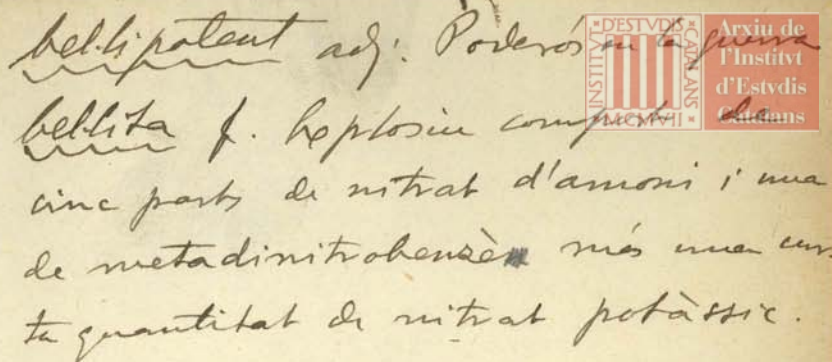 bel·lipotent adj. Poderós en la guerra
bel·lita f. Explosiu compost de
cinc parts de nitrat d'amoni i una
de metadinitrobenzè més una cer-
ta quantitat de nitrat potàssic.
INSTITVT D'ESTVDIS CATALANS MCMVII
Arxiu de
l'Institvt
d'Estvdis
Catalans